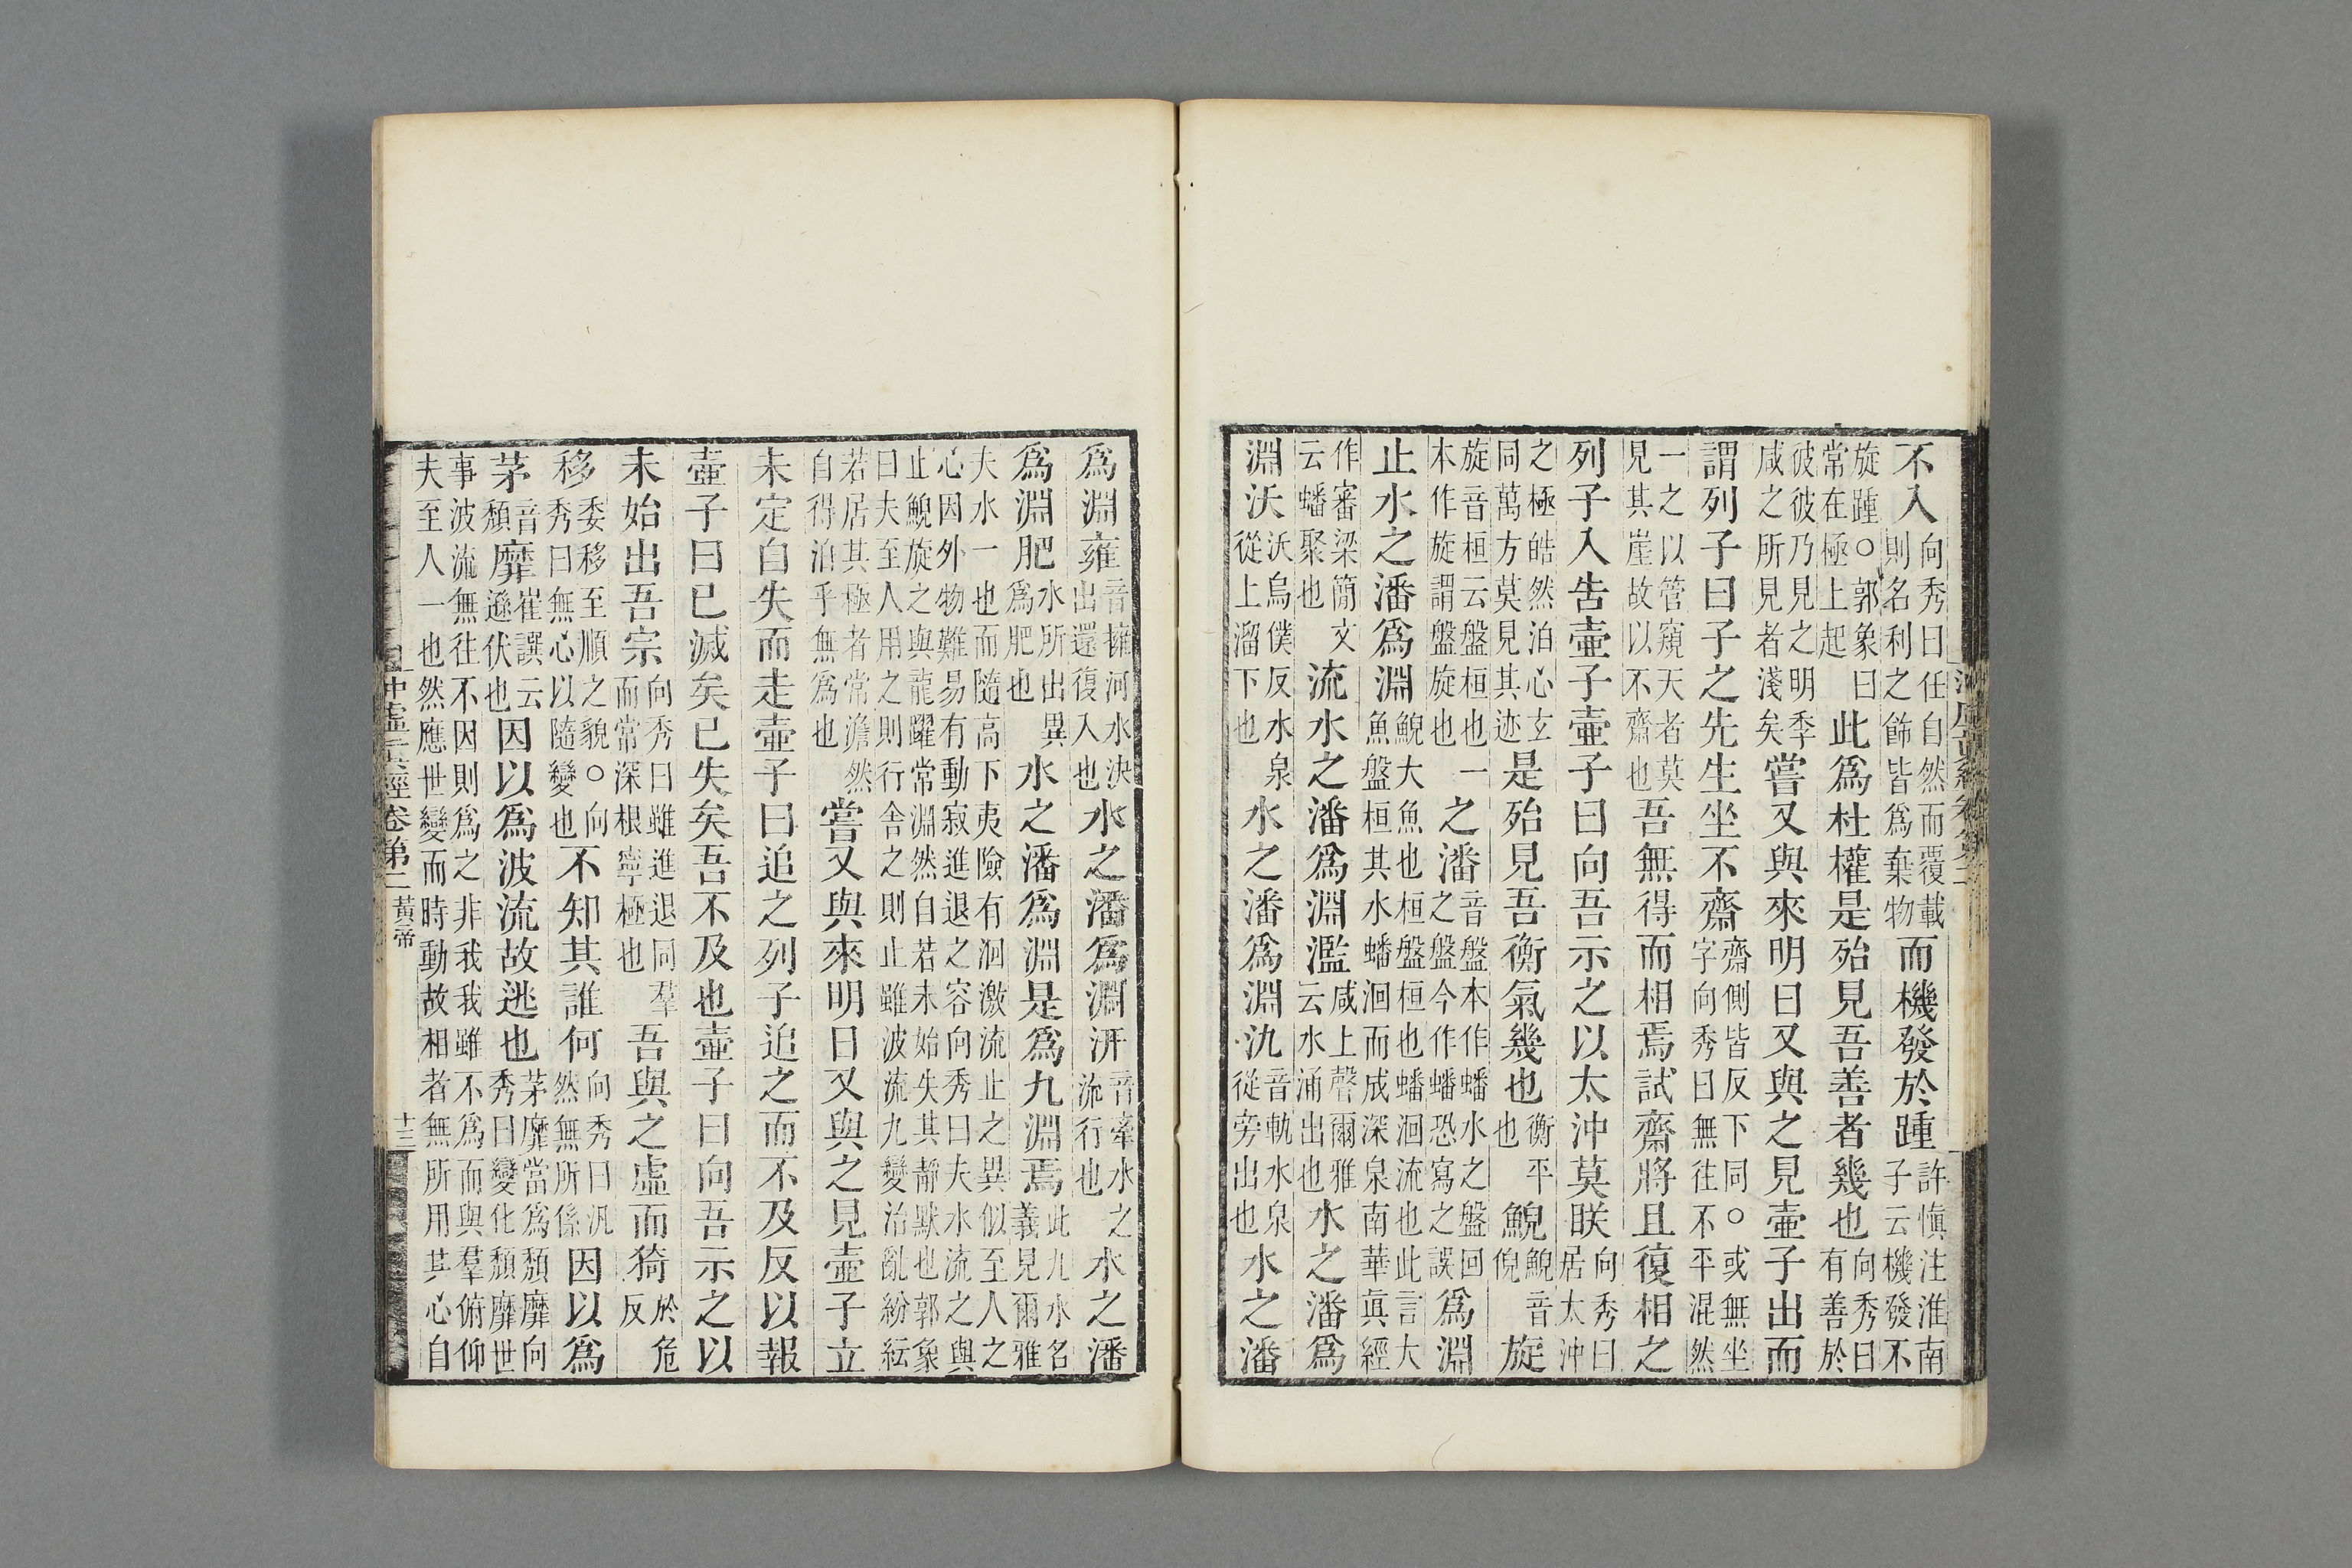 不入向秀曰任自然而覆載則名利之飾皆爲棄物而機發於踵許愼注淮南子云機發不
旋踵○郭象曰常在極上起此爲杜權是殆見吾善者幾也向秀曰有善於
彼彼乃見之明季咸之所見者淺矣嘗又與來明日又與之見壷子出而
謂列子曰子之先生坐不齋齋側皆反下同○或無坐字向秀曰無往不平混然
一之以管窺天者莫見其崖故以不齋也吾無得而相焉試齋將且復相之
列子入告壷子壷子曰向吾示之以太沖莫眹向秀曰居太沖
之極皓然泊心玄同萬方莫見其迹是殆見吾衡氣幾也衡平也鯢鯢音倪旋
旋音桓云盤桓也一本作旋謂盤旋也之潘音盤本作蟠水之盤回之盤今作蟠恐寫之誤爲淵
止水之潘爲淵鯢大魚也桓盤桓也蟠洄流也此言大魚盤桓其水蟠洄而成深泉南華眞經
作審梁簡文云蟠聚也流水之潘爲淵濫咸上聲爾雅云水涌出也水之潘爲
淵沃沃烏僕反水泉從上溜下也水之潘爲淵氿音軌水泉從旁出也水之潘
爲淵雍音擁河水決出還復入也水之潘爲淵汧音牽水之流行也水之潘
爲淵肥水所出異爲肥也水之潘爲淵是爲九淵焉此九水名義見爾雅
夫水一也而隨高下夷險有洄激流止之異似至人之心因外物難易有動寂進退之容向秀曰夫水流之與
止鯢旋之與龍躍常淵然自若未始失其靜默也郭象曰夫至人用之則行舍之則止雖波流九變治亂紛紜
若居其極者常澹然自得泊乎無爲也嘗又與來明日又與之見壷子立
未定自失而走壷子曰追之列子追之而不及反以報
壷子曰已滅矣已失矣吾不及也壷子曰向吾示之以
未始出吾宗向秀曰雖進退同羣而常深根寧極也吾與之虛而猗於危反
移委移至順之貌○向秀曰無心以隨變也不知其誰何向秀曰汎然無所係因以爲
茅音頹靡崔譔云遜伏也因以爲波流故逃也茅靡當爲頹靡向秀曰變化頹靡世
事波流無往不因則爲之非我我雖不爲而與羣俯仰夫至人一也然應世變而時動故相者無所用其心自
卷第二 黃帝 十三